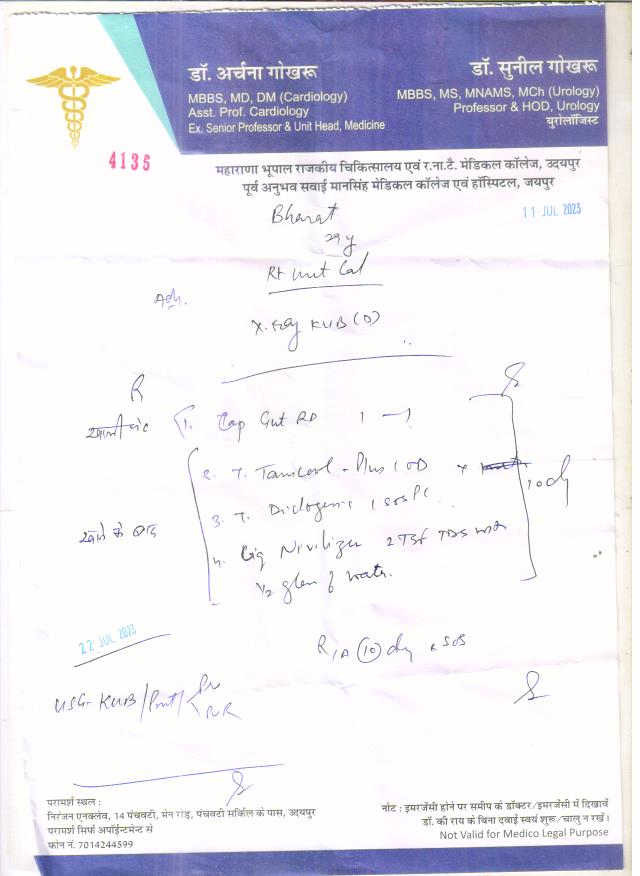 डॉ. अर्चना गोखरू
MBBS, MD, DM (Cardiology)
Asst. Prof. Cardiology
Ex. Senior Professor & Unit Head, Medicine
डॉ. सुनील गोखरू
MBBS, MS, MNAMS, MCh (Urology)
Professor & HOD, Urology
युरोलॉजिस्ट
4135
महाराणा भूपाल राजकीय चिकित्सालय एवं र.ना.टै. मेडिकल कॉलेज, उदयपुर
पूर्व अनुभव सवाई मानसिंह मेडिकल कॉलेज एवं हॉस्पिटल, जयपुर
11 JUL 2023
Bharat
Rt Cal
Adv.
X-Ray KUB (D)
R
खाली पेट
1. Cap Gut RD 1
2. T. Plus 1 OD
3. T. 1 SOS PC
खाने के बाद
4. 2 TSF TDS
1/2 glass of water.
10 day
22 JUL 2023
R/A 10 day & SOS
USG-KUB/Prost/Pre
PVR
परामर्श स्थल :
निरंजन एनक्लेव, 14 पंचवटी, मेन रोड़, पंचवटी सर्किल के पास, उदयपुर
परामर्श सिर्फ अपॉईन्टमेन्ट से
फोन नं. 7014244599
नोट : इमरजेंसी होने पर समीप के डॉक्टर/इमरजेंसी में दिखावें
डॉ. की राय के बिना दवाई स्वयं शुरू/चालु न रखें।
Not Valid for Medico Legal Purpose